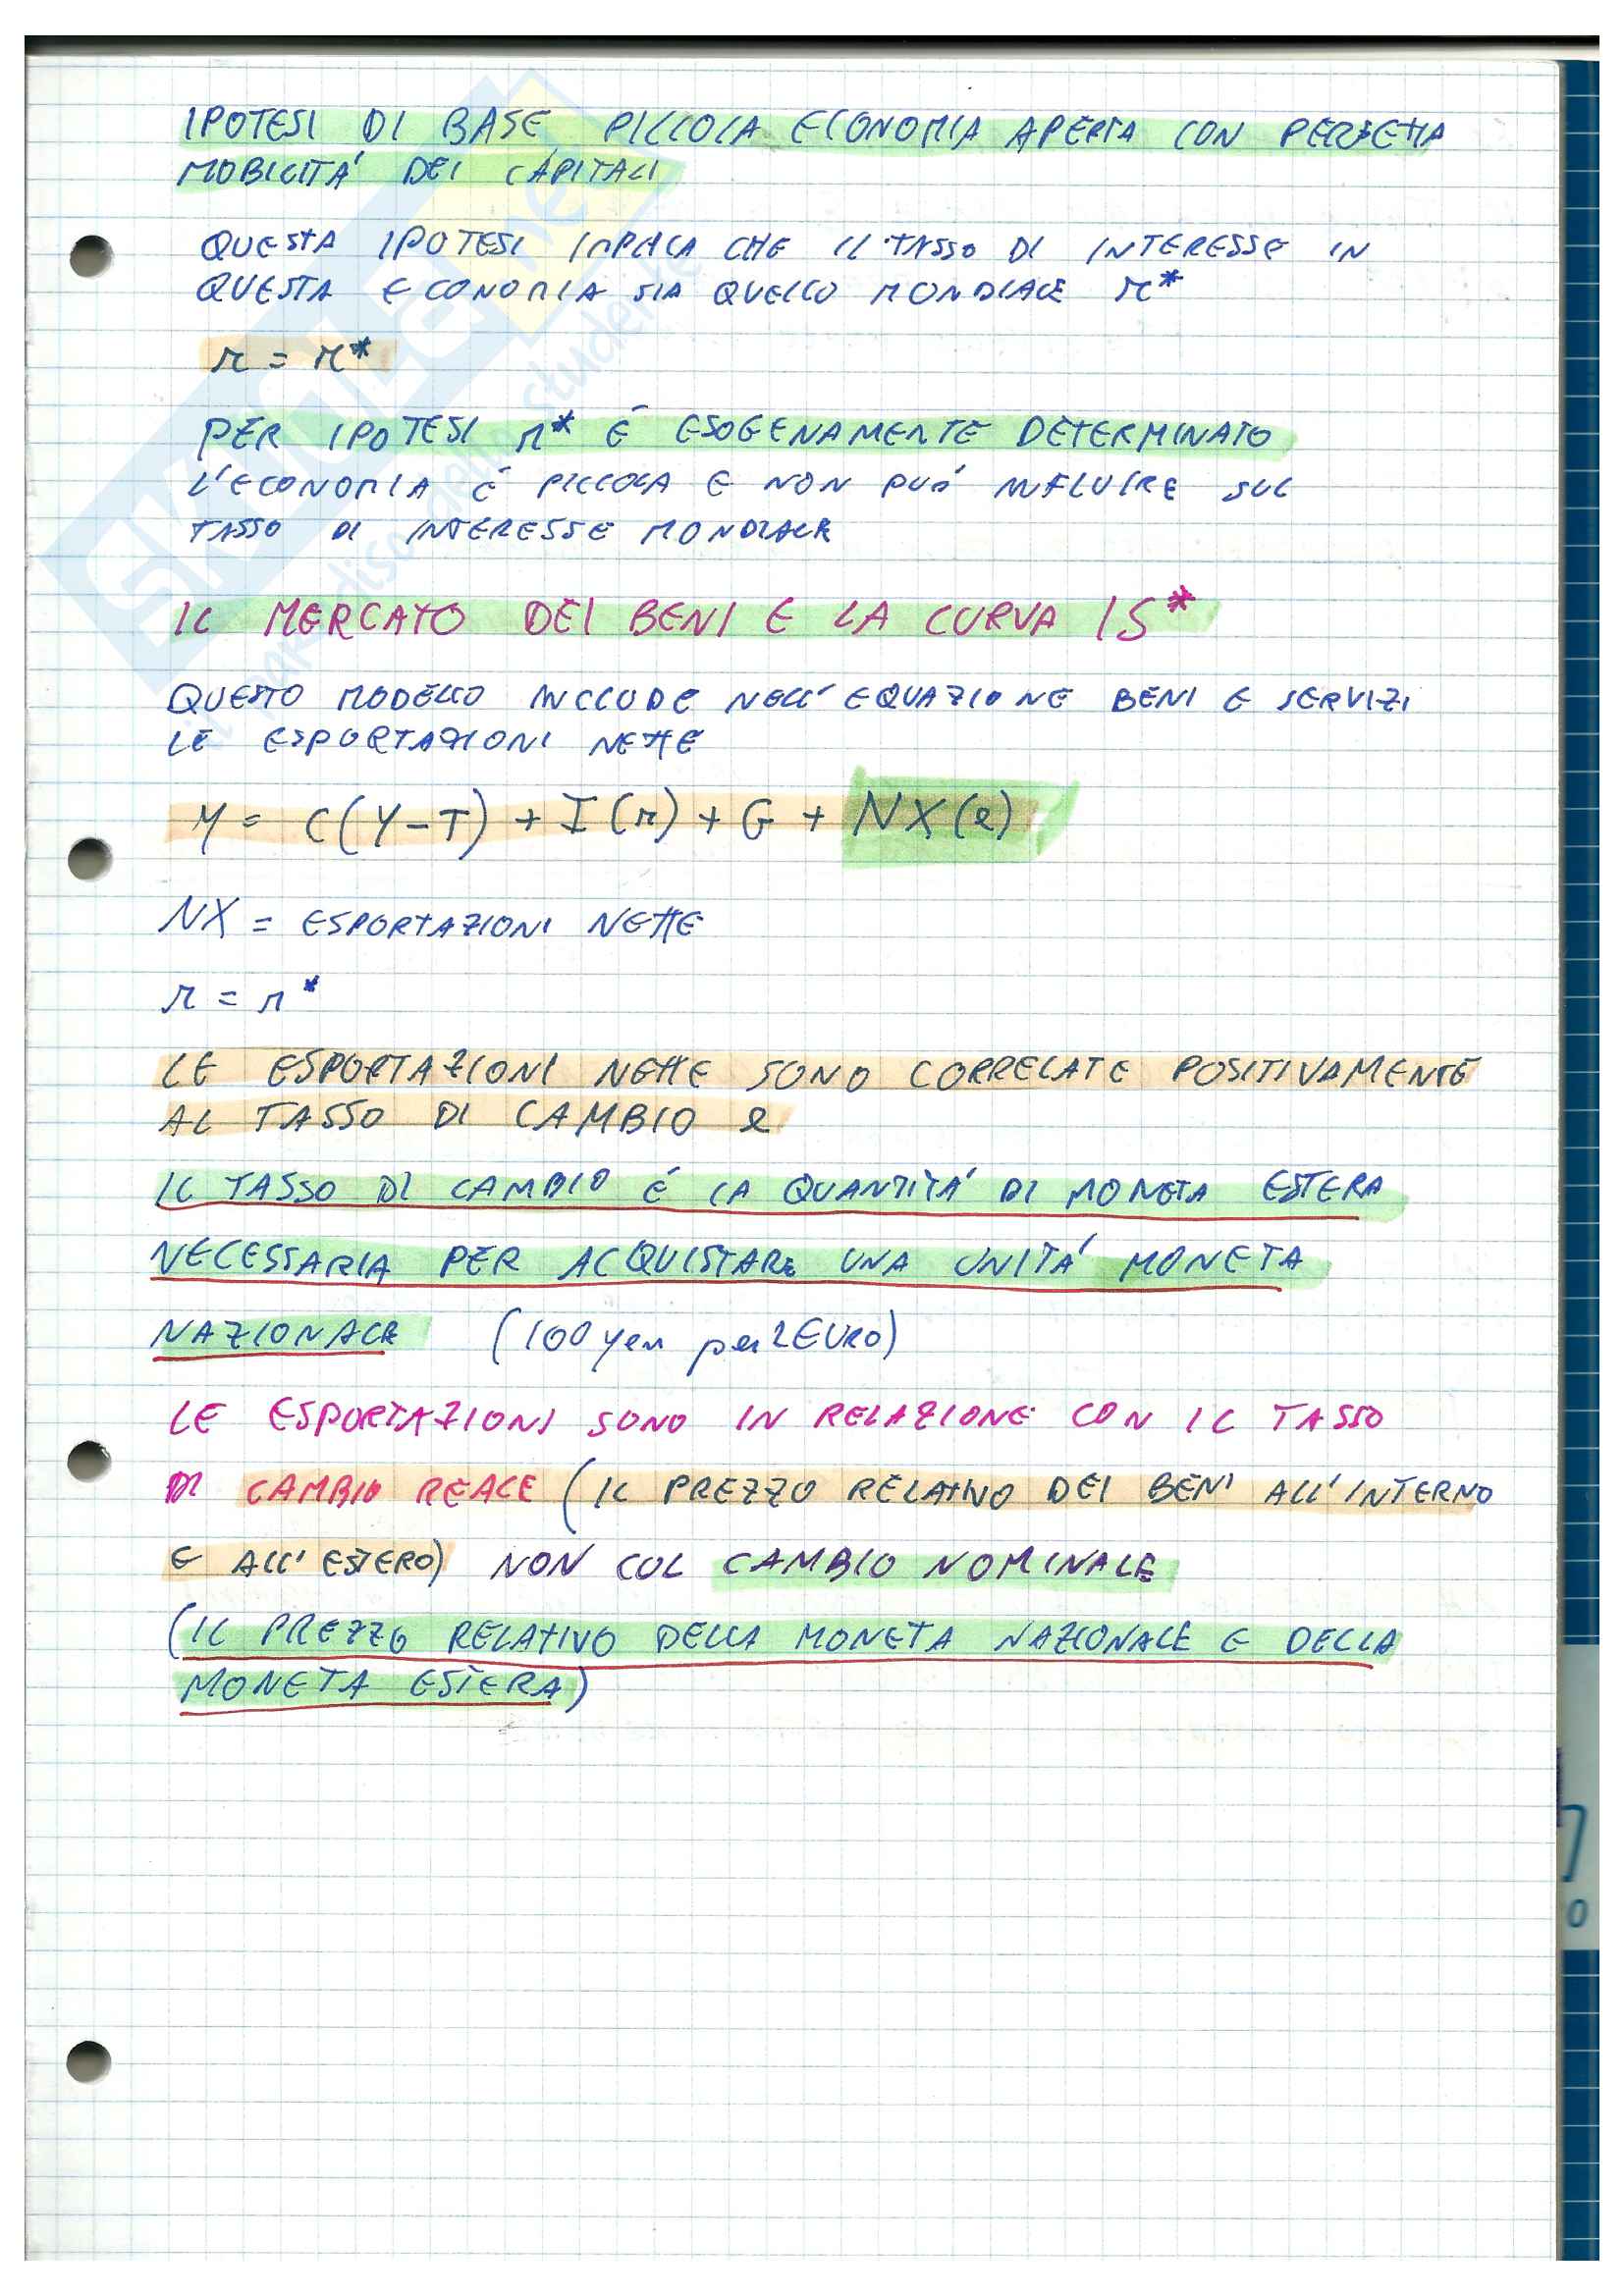 IPOTESI DI BASE PICCOLA ECONOMIA APERTA CON PERFETTA
MOBILITÁ DEI CAPITALI
QUESTA IPOTESI IMPLICA CHE IL TASSO DI INTERESSE IN
QUESTA ECONOMIA SIA QUELLO MONDIALE r*
r = r*
PER IPOTESI r* É ESOGENAMENTE DETERMINATO
L'ECONOMIA É PICCOLA E NON PUÓ INFLUIRE SUL
TASSO DI INTERESSE MONDIALE
IL MERCATO DEI BENI E LA CURVA IS*
QUESTO MODELLO INCLUDE NELL'EQUAZIONE BENI E SERVIZI
LE ESPORTAZIONI NETTE
Y = C(Y-T) + I(r) + G + NX(e)
NX = ESPORTAZIONI NETTE
r = r*
LE ESPORTAZIONI NETTE SONO CORRELATE POSITIVAMENTE
AL TASSO DI CAMBIO e
IL TASSO DI CAMBIO É LA QUANTITÁ DI MONETA ESTERA
NECESSARIA PER ACQUISTARE UNA UNITÁ MONETA
NAZIONALE (100 yen per 1 EURO)
LE ESPORTAZIONI SONO IN RELAZIONE CON IL TASSO
DI CAMBIO REALE (IL PREZZO RELATIVO DEI BENI ALL'INTERNO
E ALL'ESTERO) NON COL CAMBIO NOMINALE
(IL PREZZO RELATIVO DELLA MONETA NAZIONALE E DELLA
MONETA ESTERA)